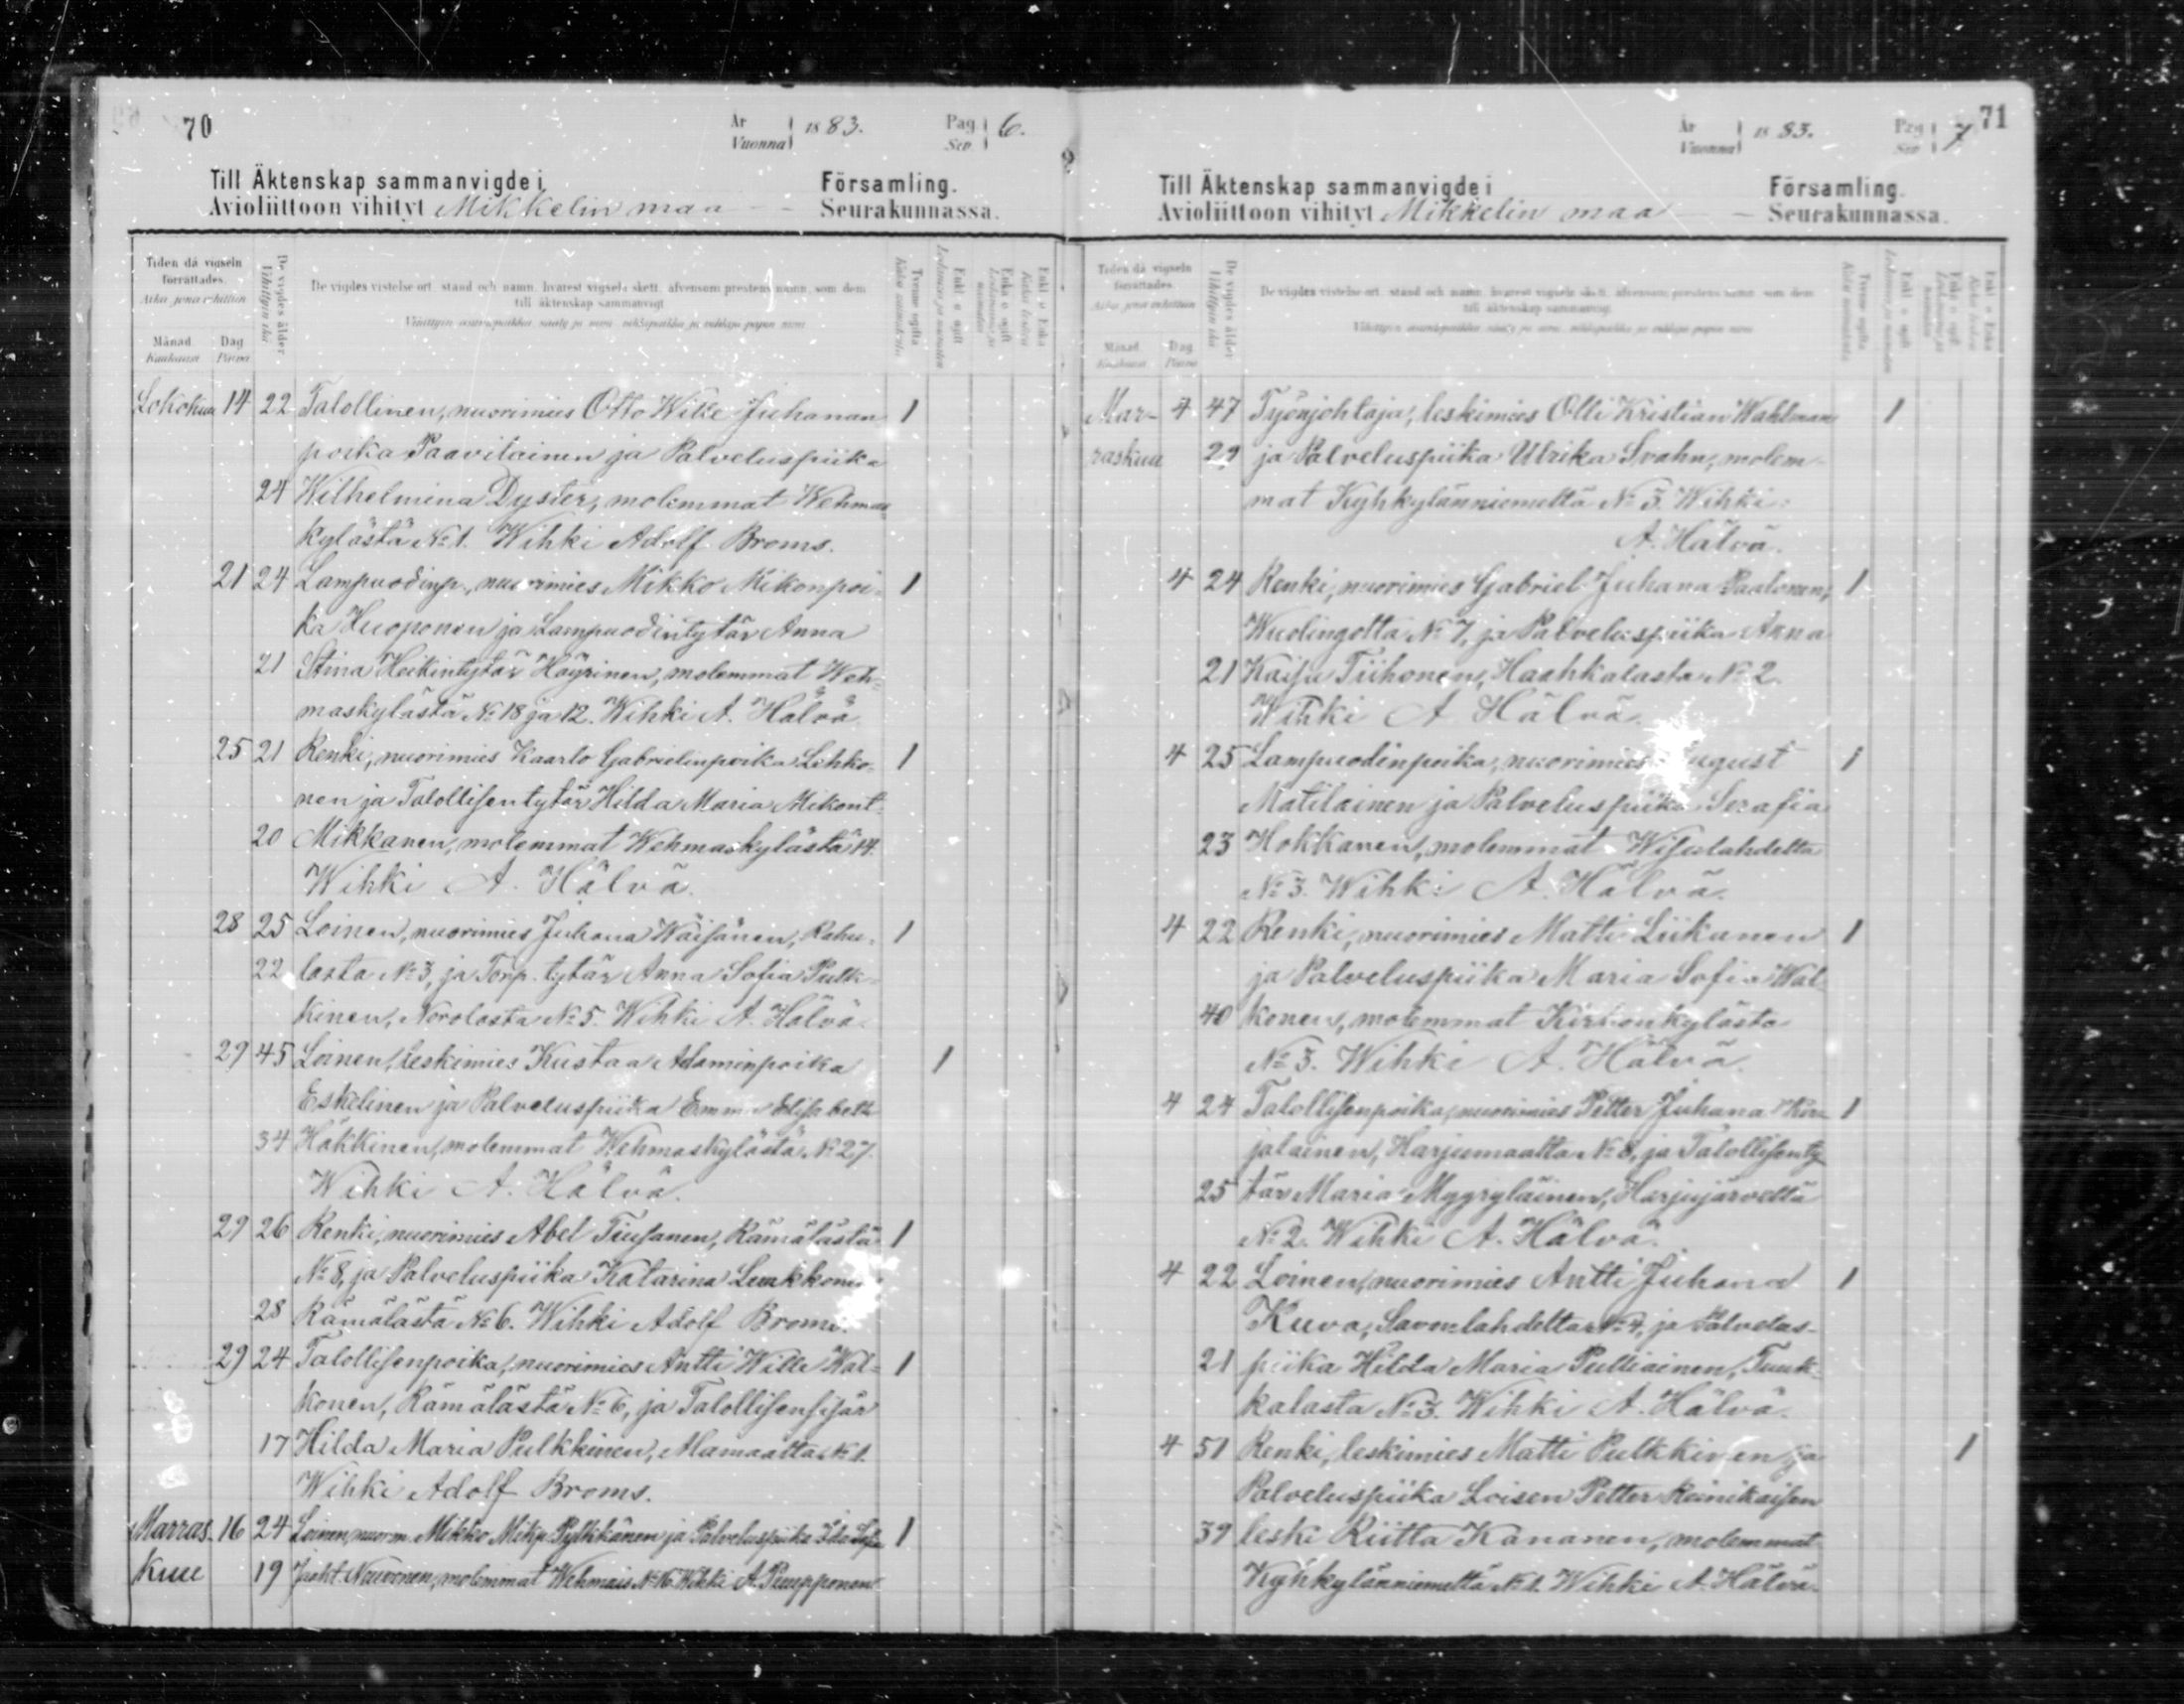 70
År Vuonna 1883. Pag Siv. 6.
Till Äktenskap sammanvigde i Församling.
Avioliittoon vihityt Mikkelin maa Seurakunnassa.
Tiden då vigseln förrättades.
Aika jona vihittiin
Månad Dag
Kuukausi Päivä
De vigdes ålder
Vihittyin ikä
De vigdes vistelse ort, stånd och namn, hvarest vigseln skett, äfvensom prestens namn, som dem
till äktenskap sammanvigt.
Vihittyin asuntopaikka, sääty ja nimi, vihkipaikka ja vihkijä papin nimi
Lokokuu 14 22 Talollinen, nuorimies Otto Wille Juhanan 1
poika Paavilainen ja Palveluspiika
24 Wilhelmina Dyster, molemmat Wehmas
kylästä No 1. Wihki Adolf Broms.
21 24 Lampuodinp., nuorimies Mikko Mikonpoi- 1
ka Huoponen ja Lampuodintytär Anna
21 Stina Heikintytär Häyrinen, molemmat Weh-
maskylästä No 18 ja 12. Wihki A. Hälvä
25 21 Renki, nuorimies Kaarlo Gabrielinpoika Lihko- 1
nen ja Talollisentytär Hilda Maria Mikont.
20 Mikkanen, molemmat Wehmaskylästä 14.
Wihki A. Hälvä.
28 25 Loinen, nuorimies Juhana Wäisänen, Rahu- 1
22 lasta No 3, ja Torp. tytär Anna Sofia Pulk-
kinen, Norolasta No 5. Wihki A. Hälvä.
29 45 Loinen, leskimies Kustaa Adaminpoika 1
Eskelinen ja Palveluspiika Emma Elisabeth
34 Häkkinen, molemmat Wehmaskylästä No 27.
Wihki A. Hälvä.
29 26 Renki, nuorimies Abel Tiusanen, Rämälästä 1
No 8, ja Palveluspiika Katarina
28 Rämälästä No 6. Wihki Adolf Broms.
29 24 Talollisenpoika, nuorimies Antti Wille Wal- 1
konen, Rämälästä No 6, ja Talollisensisär
17 Hilda Maria Pulkkinen, No 1.
Wihki Adolf Broms.
Marras- 16 24 Loinen, nuorm. Mikko Mikp. Pylkkänen ja Palveluspiika Ida 1
kuu 19 Nuuvonen, molemmat Wehmais. No 16. Wihki A. Puupponen
71
År Vuonna 1883. Pag Siv 7
Till Äktenskap sammanvigde i Församling.
Avioliittoon vihityt Mikkelin maa Seurakunnassa.
Tiden då vigseln förrättades.
Aika jona vihittiin
Månad Dag
Kuukausi Päivä
De vigdes ålder
Vihittyin ikä
De vigdes vistelse ort, stånd och namn, hvarest vigseln skett, äfvensom prestens namn, som dem
till äktenskap sammanvigt.
Vihittyin asuntopaikka, sääty ja nimi, vihkipaikka ja vihkijä papin nimi
Mar- 4 47 Työnjohtaja, leskimies Olli Kristian Wahlman 1
raskuu 29 ja Palveluspiika Ulrika Svahn, molem-
mat Kyhkylänniemeltä No 3. Wihki
A. Hälvä.
4 24 Renki, nuorimies Gabriel Juhana Paalonen, 1
Wuolingolta No 7, ja Palveluspiika Anna
21 Kaisa Tiihonen, Haahkalasta No 2.
Wihki A. Hälvä.
4 25 Lampuodinpoika, nuorimies August 1
Matilainen ja Palveluspiika Serafia
23 Hokkanen, molemmat Wisulahdelta
No 3. Wihki A. Hälvä.
4 22 Renki, nuorimies Matti Liikanen 1
ja Palveluspiika Maria Sofia Wal-
40 konen, molemmat Kirkonkylästä
No 3. Wihki A. Hälvä.
4 24 Talollisenpoika, nuorimies Petter Juhana 1
jalainen, Harjumaalta No 8, ja Talollisenty-
25 tär Maria Myyryläinen, Harjujärveltä
No 2. Wihki A. Hälvä.
4 22 Loinen, nuorimies Antti Juhana 1
Kuva, Savonlahdelta No 4, ja Palvelus-
21 piika Hilda Maria Pulliainen, Tuuk-
kalasta No 3. Wihki A. Hälvä.
4 51 Renki, leskimies Matti Pulkkinen ja 1
Palveluspiika Loisen Petter Reinikaisen
39 leski Riitta Kananen, molemmat
Kyhkylänniemeltä No 1. Wihki A. Hälvä.